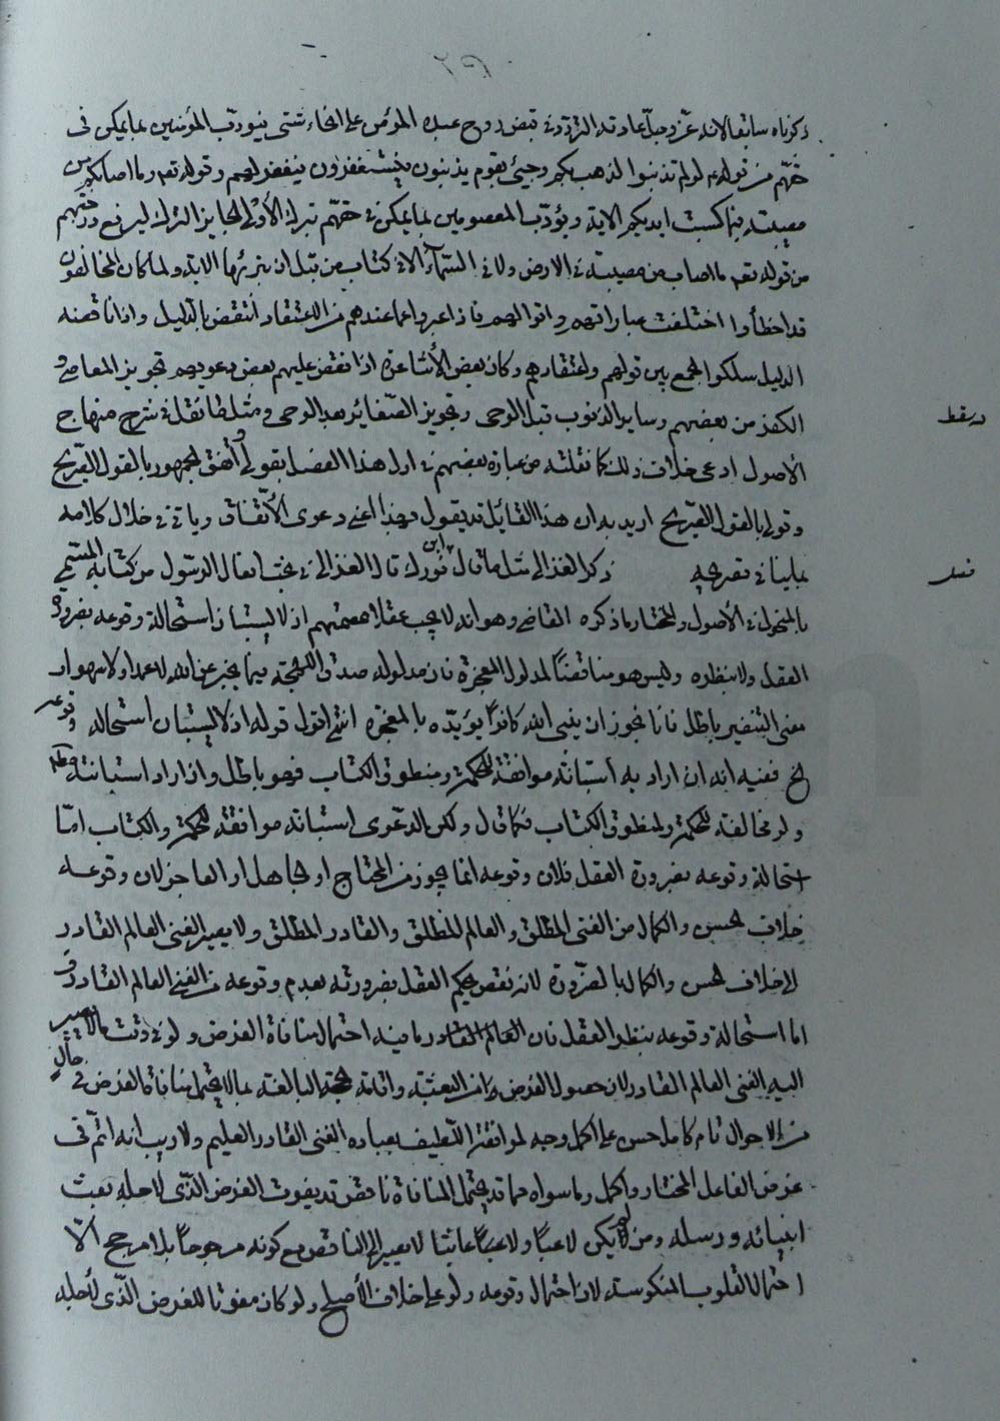 ذكرناه سابقا لانه عزّ وجلّ عادته التردّد في قبض روح عبده المؤمن على انحاء شتى فيودّب المؤمنين بما يمكن في
حقّهم من قوله لو لم تذنبوا لذهب بكم وجيئ بقوم يذنبون فيستغفرون فيغفر لهم وقوله تعم وما اصابكم من
مصيبة فبما كسبت ايديكم الاية ويؤدّب المعصومين بما يمكن في حقّهم بترك الأولى الجايز الترك ليرفع درجتهم
من قوله تعم ما اصاب من مصيبة في الارض ولا في السّمآء الا في كتاب من قبل ان نبرئها الاية ولما كان المخالفون
قد اخطأوا اختلفت عباراتهم واقوالهم فاذا عبروا عما عندهم من الاعتقاد انتقض بالدّليل واذا ناقضه
الدليل سلكوا الجمع بين قولهم واعتقادهم وكان بعض الأشاعرة اذا نقض عليهم بعض دعويهم تجويز المعاصي و
الكفر من بعضهم وساير الذنوب قبل الوحى وتجويز الصّغائر بعد الوحى ومثل ما نقل في شرح منهاج
الأصول ادعى خلاف ذلك كما نقلته من عبارة بعضهم في اول هذا الفصل بقولى واتفق الجمهور بالقول الصّريح
وقولى بالقول الصّريح اريد به ان هذا القائل قد يقول بهذا اعنى دعوى الأتّفاق وياتى في خلال كلامه
بما ينافى تصريحه ذكر الغزالى مثل ما قال ابن فورك قال الغزالى في بحث افعال الرسول من كتابه المسمّى
بالمنخول في الأصول والمختار ما ذكره القاضى وهو انه لا يجب عقلا عصمتهم اذ لا يستبان استحالة وقوعه بضرورة
العقل ولا بنظره وليس هو مناقضًا لمدلول المعجزة فان مدلوله صدق اللّهجة فيما يخبر عن الله لا عمدا ولا سهوا و
معنى التنفير باطل فانا نجوز ان ينبى الله كافرًا يؤيّده بالمعجزة انتهى اقول قوله اذ لا يستبان استحالة وقوعه
الخ ففيه انه ان اراد به استبانة موافقة للحكمة ومنطوق الكتاب فهو باطل وان اراد استبانة
ولو مخالفة للحكمة ولمنطوق الكتاب فكما قال ولكن الدعوى استبانة موافقة للحكمة والكتاب امّا
استحالة وقوعه بضرورة العقل فلان وقوعه انما يجوز من المحتاج او الجاهل او العاجز لان وقوعه
خلاف الحسن والكمال من الغنى المطلق والعالم المطلق والقادر المطلق ولا يصير الغنى العالم القادر
الى خلاف الحسن والكمال بالضرورة لانه نقص يحكم العقل بضرورته بعدم وقوعه من الغنى العالم القادر و
اما استحالة وقوعه بنظر العقل فان العالم القادر ما فيه احتمال منافاة الغرض ولو في وقت ما لا يصير
اليه الغنى العالم القادر لان حصول الغرض من البعثة واقامة الحجة البالغة بما لا يحتمل منافاة الغرض في حال
من الاحوال تام كامل حسن على اكمل وجه لموافقة التكليف بعباده الغنى القادر العليم ولا ريب انه اتمّ في
غرض الفاعل المختار واكمل وما سواه مما قد يحتمل المنافاة ناقص قد يفوت الغرض الذّى لاجله بعث
انبيائه ورسله ومن لم يكن لاعبًا ولا عبثًا عابثا لا يصير الى الناقص مع كونه مرجوحًا بلا مرجح الّا
احتمال القلوب المنكوسة لان احتمال وقوعه ولو على خلاف الأصلح ولو كان مفوتا للغرض الذّى لأجله